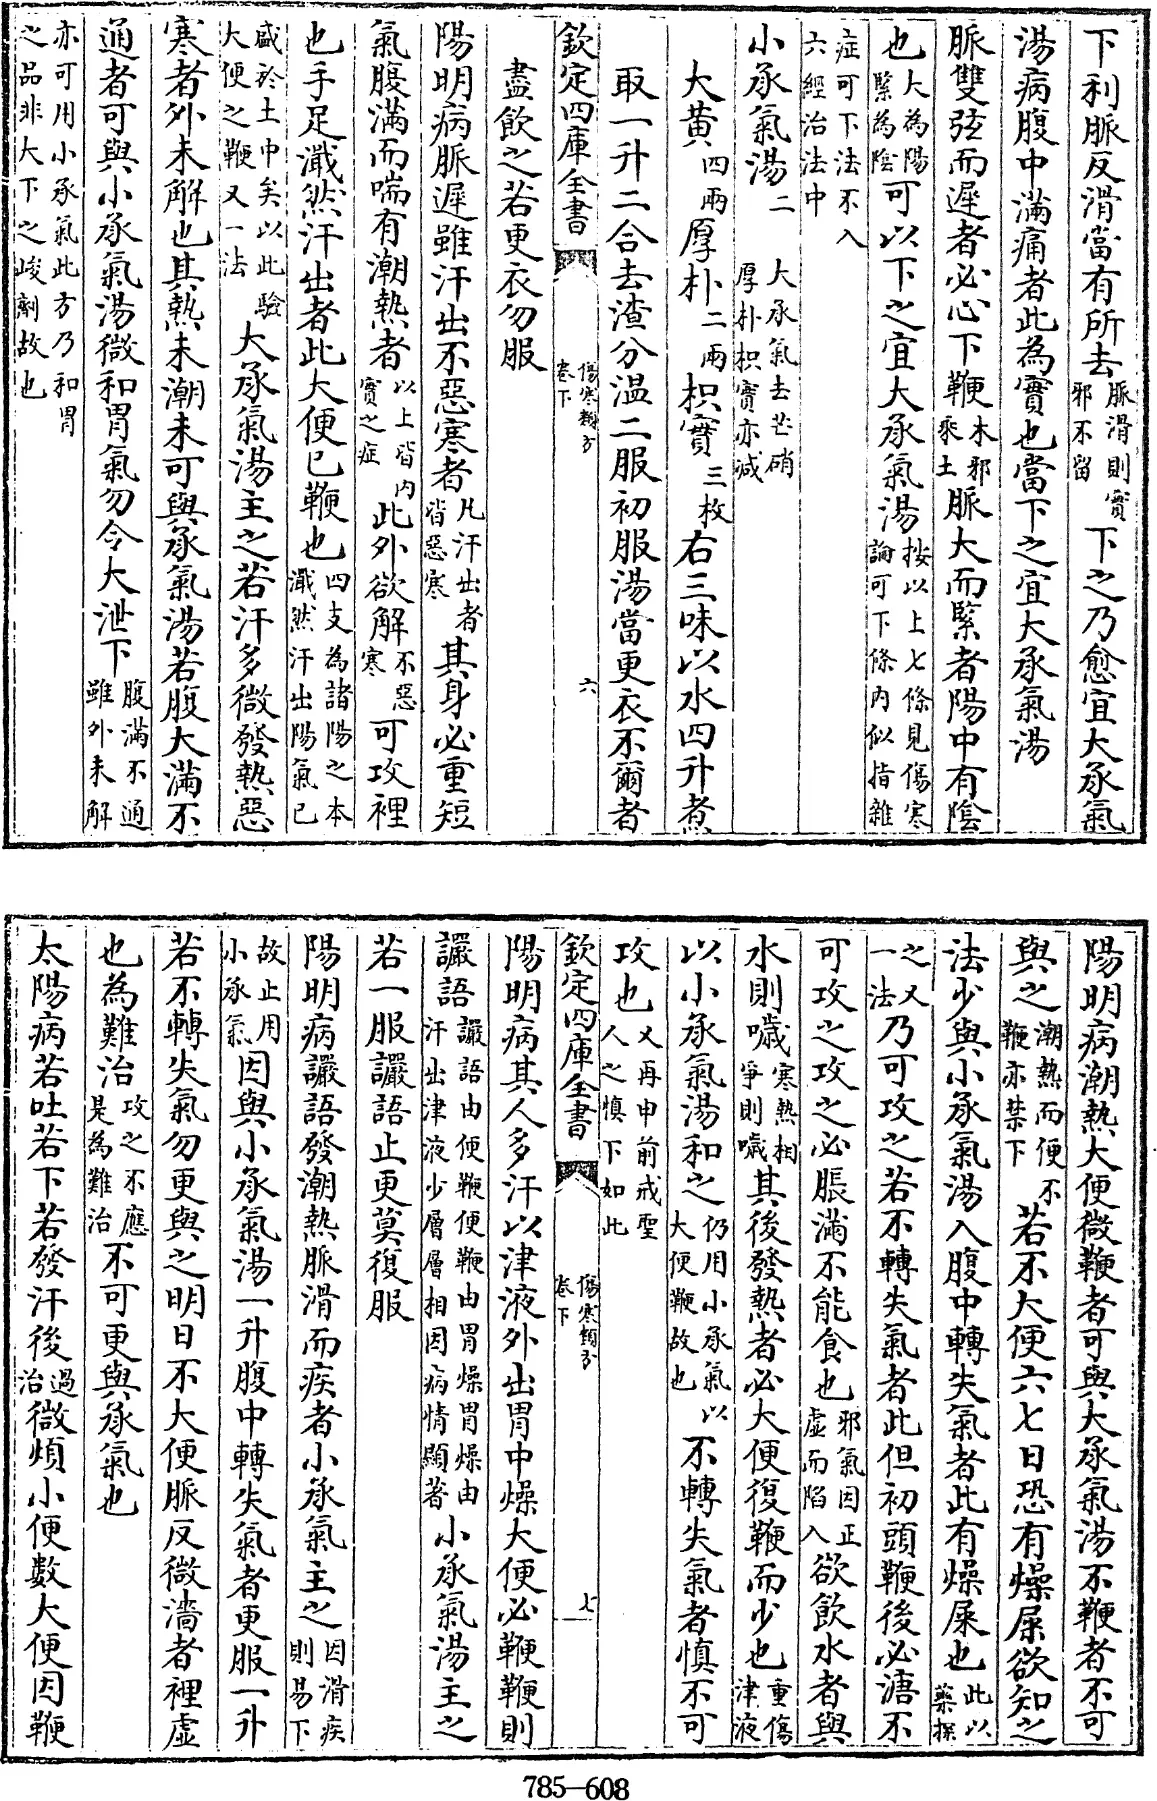 下利脈反滑當有所去脈滑則實邪不留下之乃愈宜大承氣
湯病腹中滿痛者此為實也當下之宜大承氣湯
脈雙弦而遲者必心下鞕木邪乘土脈大而緊者陽中有陰
也大為陽緊為陰可以下之宜大承氣湯按以上七條見傷寒論可下條內似指雜
症可下法不入六經治法中
小承氣湯二 大承氣去芒硝厚朴枳實亦減
大黃四兩厚朴二兩枳實三枚右三味以水四升煮
取一升二合去渣分温二服初服湯當更衣不爾者
欽定四庫全書 傷寒類方卷下 六
盡飲之若更衣勿服
陽明病脈遲雖汗出不惡寒者凡汗出者皆惡寒其身必重短
氣腹滿而喘有潮熱者以上皆內實之症此外欲解不惡寒可攻裡
也手足濈然汗出者此大便已鞕也四支為諸陽之本濈然汗出陽氣已
盛於土中矣以此驗大便之鞕又一法大承氣湯主之若汗多微發熱惡
寒者外未解也其熱未潮未可與承氣湯若腹大滿不
通者可與小承氣湯微和胃氣勿令大泄下腹滿不通雖外未解
亦可用小承氣此方乃和胃之品非大下之峻劑故也
陽明病潮熱大便微鞕者可與大承氣湯不鞕者不可
與之潮熱而便不鞕亦禁下若不大便六七日恐有燥屎欲知之
法少與小承氣湯入腹中轉失氣者此有燥屎也此以藥探
之又一法乃可攻之若不轉失氣者此但初頭鞕後必溏不
可攻之攻之必脹滿不能食也邪氣因正虛而陷入欲飲水者與
水則噦寒熱相爭則噦其後發熱者必大便復鞕而少也重傷津液
以小承氣湯和之仍用小承氣以大便鞕故也不轉失氣者慎不可
攻也又再申前戒聖人之慎下如此
欽定四庫全書 傷寒類方卷下 七
陽明病其人多汗以津液外出胃中燥大便必鞕鞕則
讝語讝語由便鞕便鞕由胃燥胃燥由汗出津液少層層相因病情顯著小承氣湯主之
若一服讝語止更莫復服
陽明病讝語發潮熱脈滑而疾者小承氣主之因滑疾則易下
故止用小承氣因與小承氣湯一升腹中轉失氣者更服一升
若不轉失氣勿更與之明日不大便脈反微濇者裡虛
也為難治攻之不應是為難治不可更與承氣也
太陽病若吐若下若發汗後過治微煩小便數大便因鞕
785—608